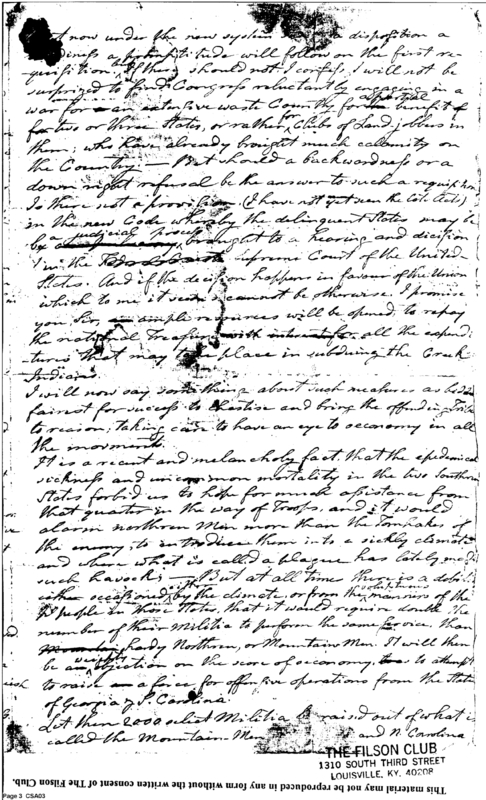 now under the new system a disposition a
a promptitude will follow on the first re-
quisition, If there should not I confess, I will not be
surprized to find Congress reluctantly engaging in a
war for an extensive waste Country for the benefit of
two or three States, or rather for Clubs of Land jobbers in
them; who have already brought much calamity on
the Country — But should a backwardness or a
down right refusal be the answer to such a requisition
Is there not a provision (I have not yet seen the late Acts)
in the new Code whereby the delinquent States may be
by a judicial process brought to a hearing and decision
in the Supreme Court of the United
States. And if the decision happens in favour of the Union
which to me it cannot be otherwise. I promise
you Sir, ample resources will be opened to repay
the national Treasury with interest for all the expendi-
tures that may take place in subduing the Creek
Indians.
I will now say something about such measures as bid
fairest for success to Chastise and bring the offending Tribe
to reason; taking care to have an eye to oeconomy in all
the movements.
It is a recent and melancholy fact, that the epidemical
sickness and uncommon mortality in the two Southern
States forbid us to hope for much assistance from
that quarter in the way of Troops, and it would
alarm northren Men more than the Tomhakes of
the enemy, to introduce them into a sickly climate
and where what is called a plague has lately made
such havock; — But at all time there is a debility
either occasioned by the climate, or from the manners of the
people in those States, that it would require double the
number of their Militia to perform the same service, than
hardy Northren, or Mountain Men. It will then
be a weighty objection on the score of oeconomy, to attempt
to raise a force for offensive operations from the State
of Georgia or S. Carolina.
Let then 2000 select Militia be raised out of what is
called the Mountain Men and N. Carolina
THE FILSON CLUB
1310 SOUTH THIRD STREET
LOUISVILLE, KY. 40208
This material may not be reproduced in any form without the written consent of The Filson Club.
Page 3 CSA03